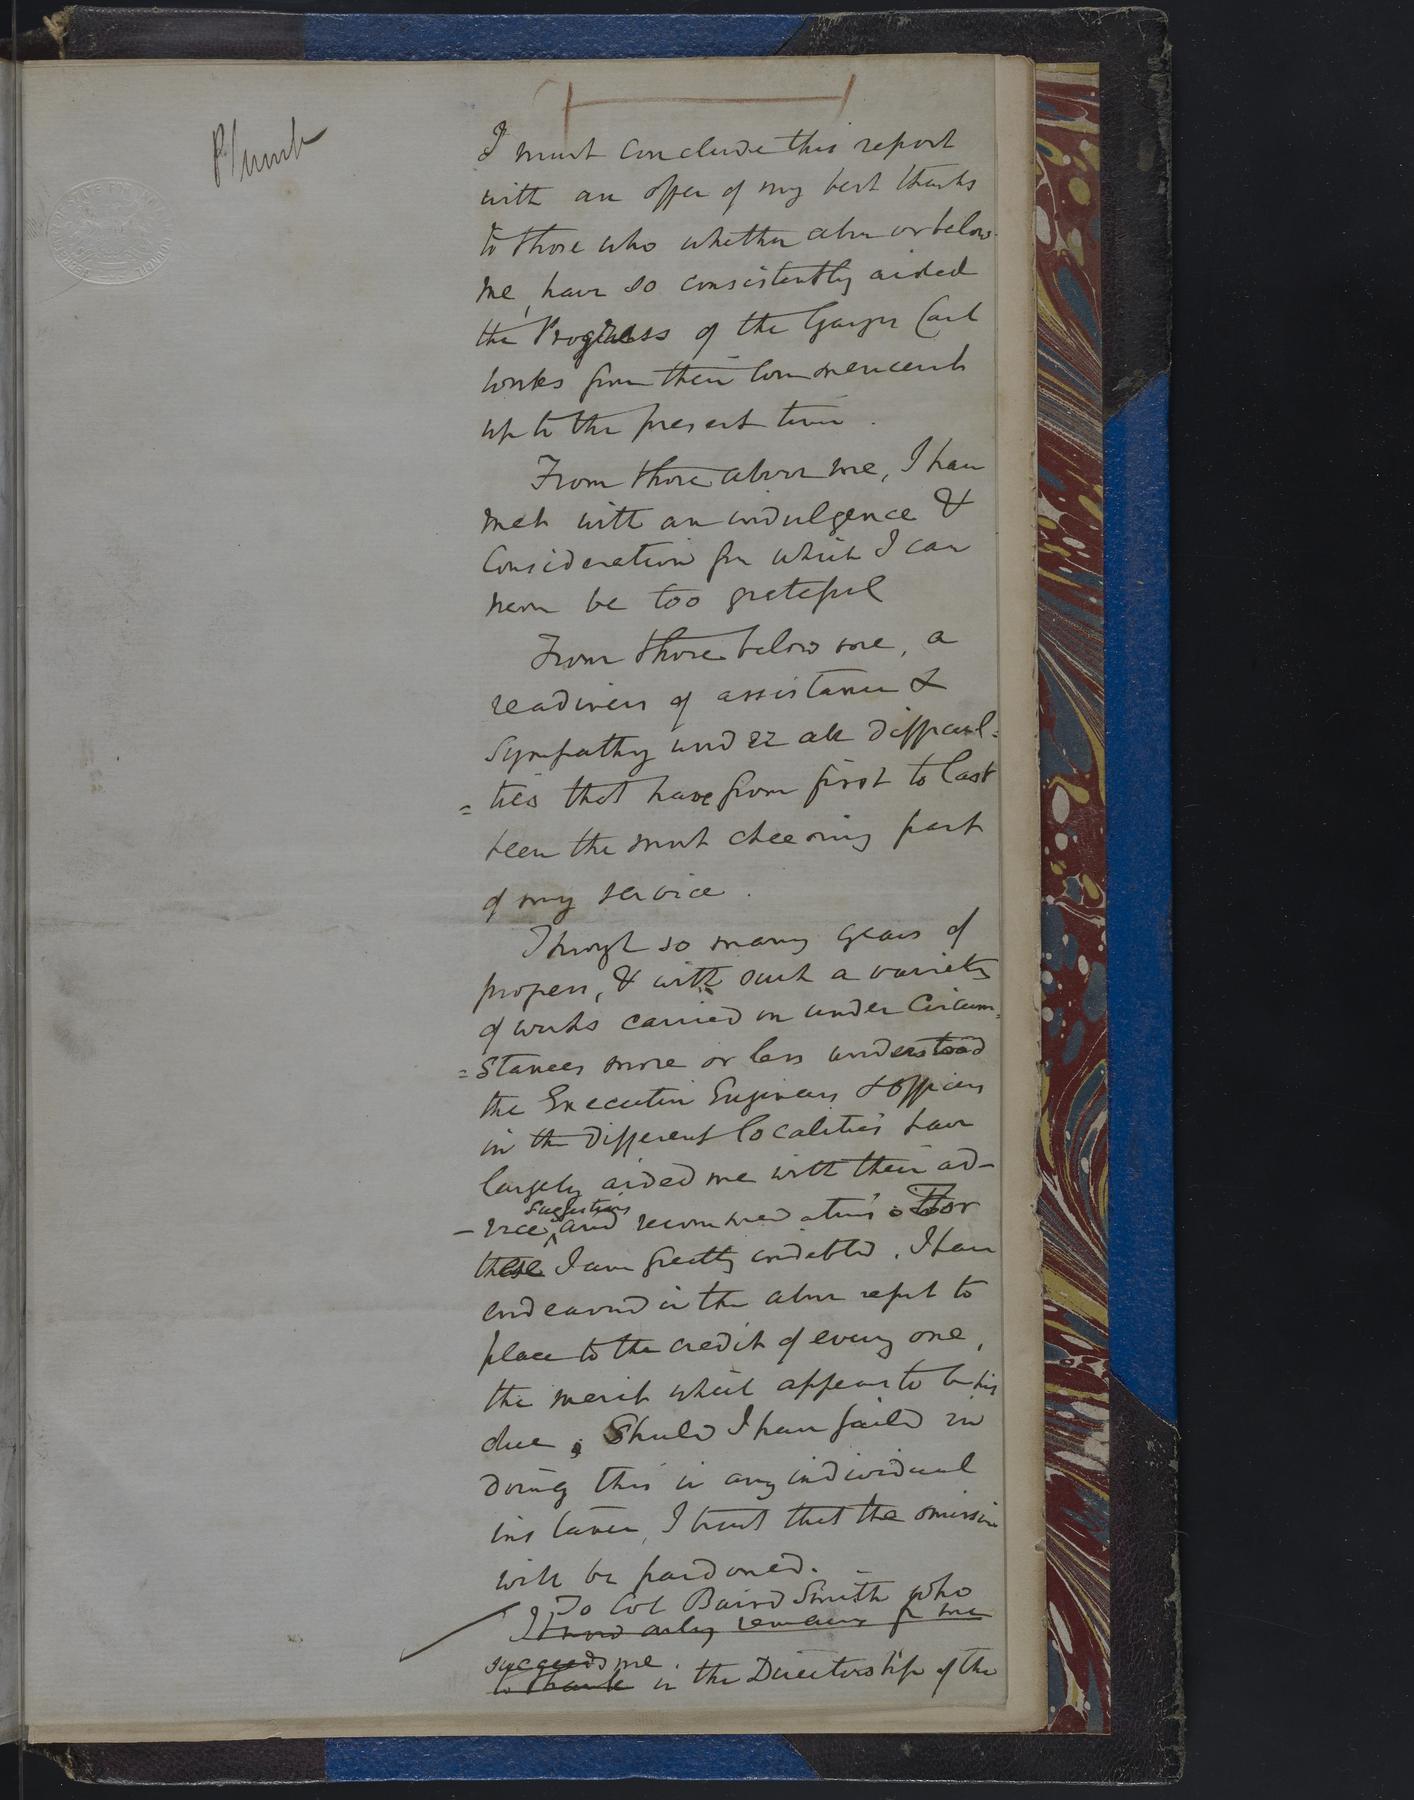 I must conclude this report
with an offer of my best thanks
to those who whether above or below
me, have so consistently aided
the Progress of the Ganges Canl
works from their Commencement
up to the present time.
From those above me, I have
met with an indulgence &
Consideration for which I can
never be too grateful
From those below me, a
readiness of assistance &
sympathy under all difficul=
=ties that have from first to last
been the most cheering part
of my service.
Through so many years of
progress, & with such a variety
of works carried on under Circum=
=stances more or less understood
the Executive Engineers & officers
in the different localities have
largely aided me with their ad-
suggestions
-vice, and recommendations. For
these I am greatly indebted. I have
endeavored in the above report to
place to the credit of every one,
the merit which appears to be his
due; Should I have failed in
doing this in any individual
instance, I trust that the omission
will be pardoned.
To Col Baird Smith who
It now only remains for me
succeeds me.
to thank in the Directorship of the